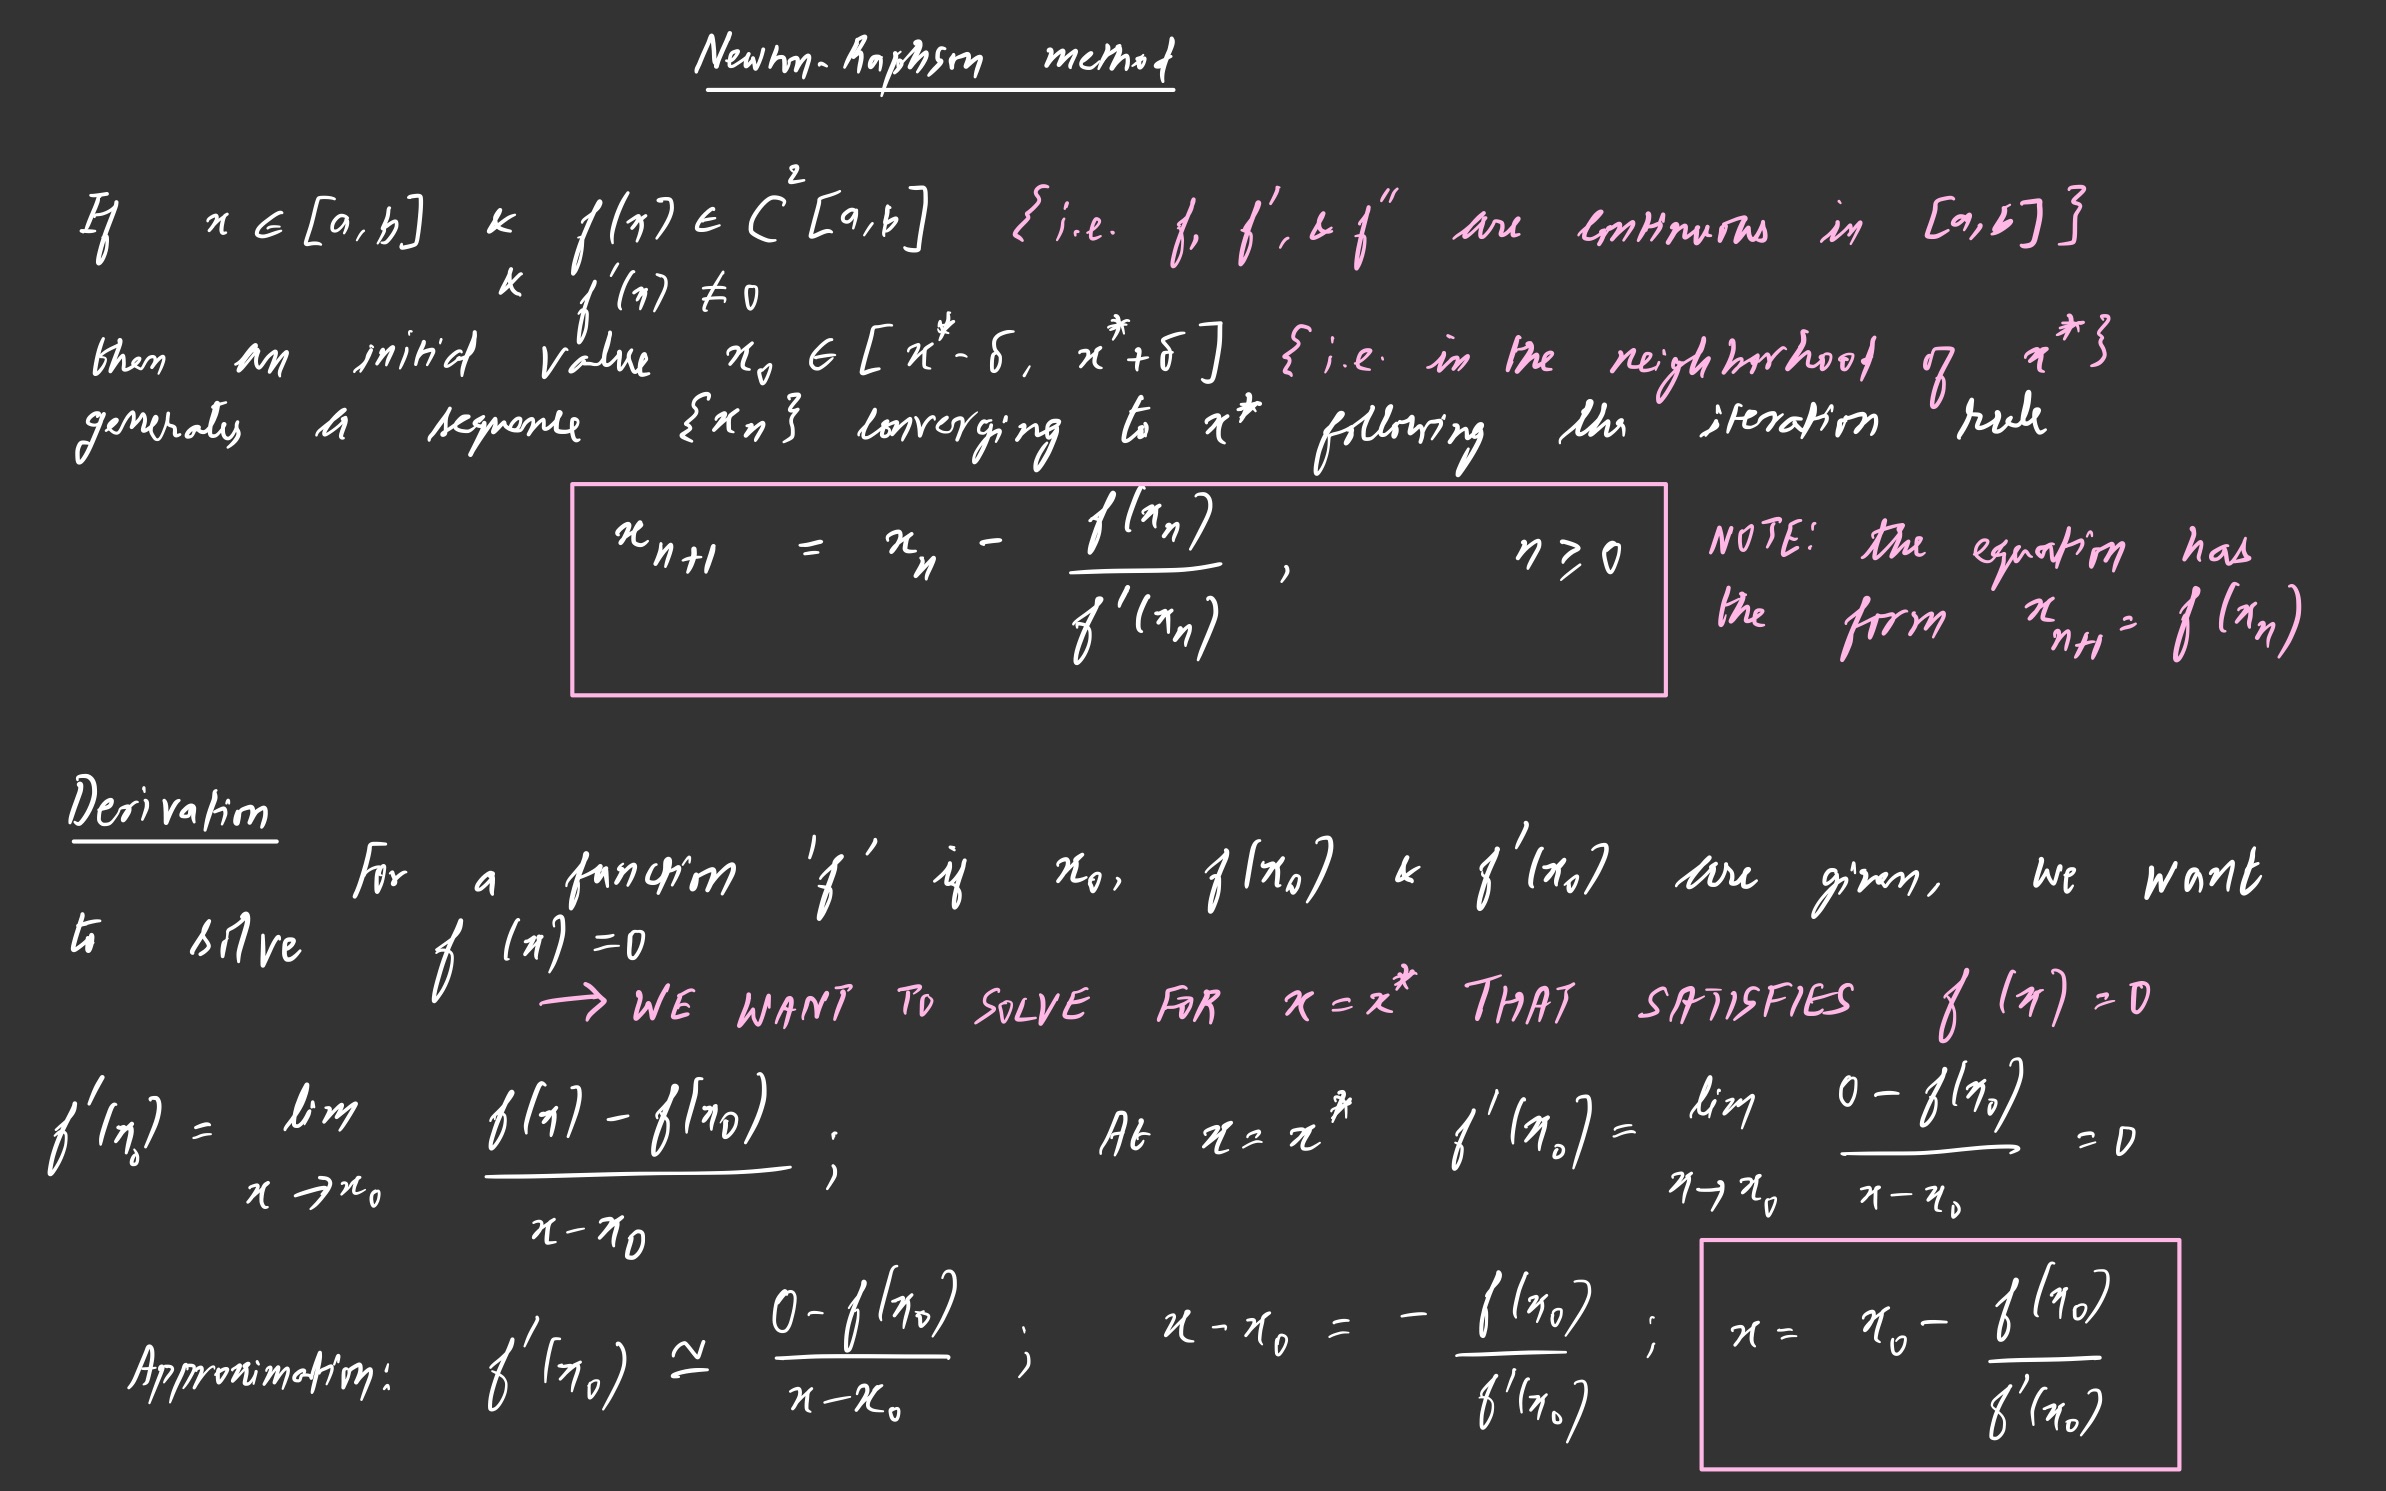 Newton-Raphson method
If x ∈ [a,b] & f(x) ∈ C²[a,b] {i.e. f, f', & f'' are continuous in [a,b]}
& f'(x) ≠ 0
then an initial value x₀ ∈ [x* - δ, x* + δ] {i.e. in the neighborhood of x*}
generates a sequence {xₙ} converging to x* following the iteration rule
xₙ₊₁ = xₙ - f(xₙ)/f'(xₙ), n ≥ 0
NOTE: the equation has
the form xₙ₊₁ = f(xₙ)
Derivation
For a function 'f' if x₀, f(x₀) & f'(x₀) are given, we want
to solve f(x) = 0
→ WE WANT TO SOLVE FOR x = x* THAT SATISFIES f(x) = 0
f'(x₀) = lim x→x₀ (f(x) - f(x₀))/(x - x₀); At x = x* f'(x₀) = lim x→x₀ (0 - f(x₀))/(x - x₀) = 0
Approximation: f'(x₀) ≅ (0 - f(x₀))/(x - x₀); x - x₀ = - f(x₀)/f'(x₀); x = x₀ - f(x₀)/f'(x₀)